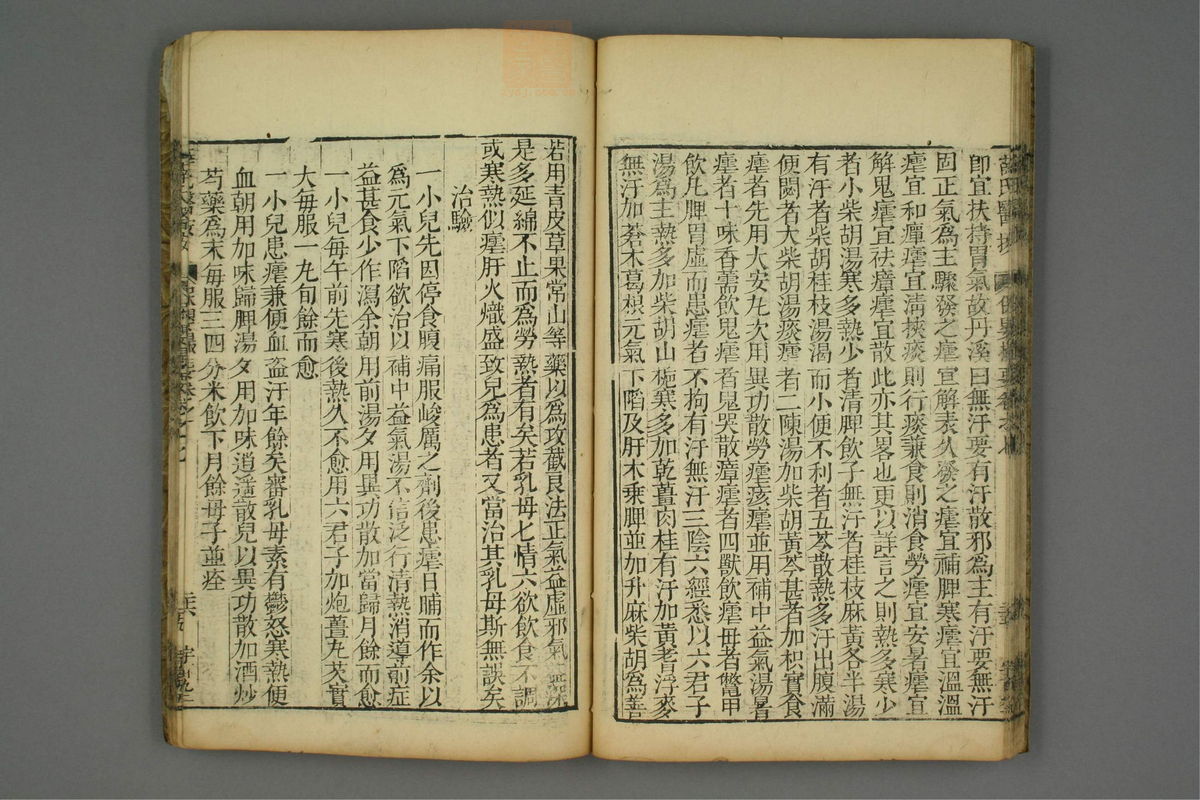 薛氏醫按
卽宜扶持胃氣故丹溪曰無汗要有汗散邪爲主有汗要無汗
因正氣爲主驟發之瘧宜解表久發之瘧宜補脾寒瘧宜溫溫
瘧宜和癉瘧宜淸挾痰則行痰兼食則消食勞瘧宜安暑瘧宜
解鬼瘧宜祛瘴瘧宜散此亦其畧也更以詳言之則熱多寒少
者小柴胡湯寒多熱少者淸脾飲子無汗者桂枝麻黃各半湯
有汗者柴胡桂枝湯渴而小便不利者五苓散熱多汗出腹滿
便閟者大柴胡湯痰瘧者二陳湯加柴胡黃芩甚者加枳實食
瘧者先用大安丸次用異功散勞瘧痎瘧並用補中益氣湯暑
瘧者十味香薷飲鬼瘧者鬼哭散瘴瘧者四獸飲瘧母者鱉甲
飲凡脾胃虛而患瘧者不拘有汗無汗三陰六經悉以六君子
湯爲主熱多加柴胡山梔寒多加乾薑肉桂有汗加黃耆浮麥
無汗加蒼朮葛根元氣下陷及肝木乘脾並加升麻柴胡爲善
若用青皮草果常山等藥以爲攻截良法正氣益虛邪氣深
是多延綿不止而爲勞熱者有矣若乳母七情六欲飲食不調
或寒熱似瘧肝火熾盛致兒爲患者又當治其乳母斯無誤矣
治驗
一小兒先因停食腹痛服峻厲之劑後患瘧日晡而作余以
爲元氣下陷欲治以補中益氣湯不信泛行淸熱消導前症
益甚食少作瀉余朝用前湯夕用異功散加當歸月餘而愈
一小兒每午前先寒後熱久不愈用六君子加炮薑丸芡實
大每服一丸旬餘而愈
一小兒患瘧兼便血盜汗年餘矣審乳母素有鬱怒寒熱便
血朝用加味歸脾湯夕用加味逍遙散兒以異功散加酒炒
芍藥爲末每服三四分米飲下月餘母子並痊